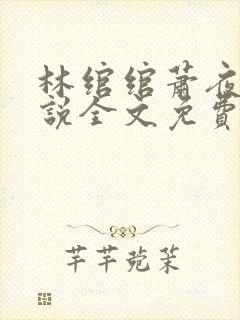 林绾绾蕭夜
説全文免費
芊芊菀茉